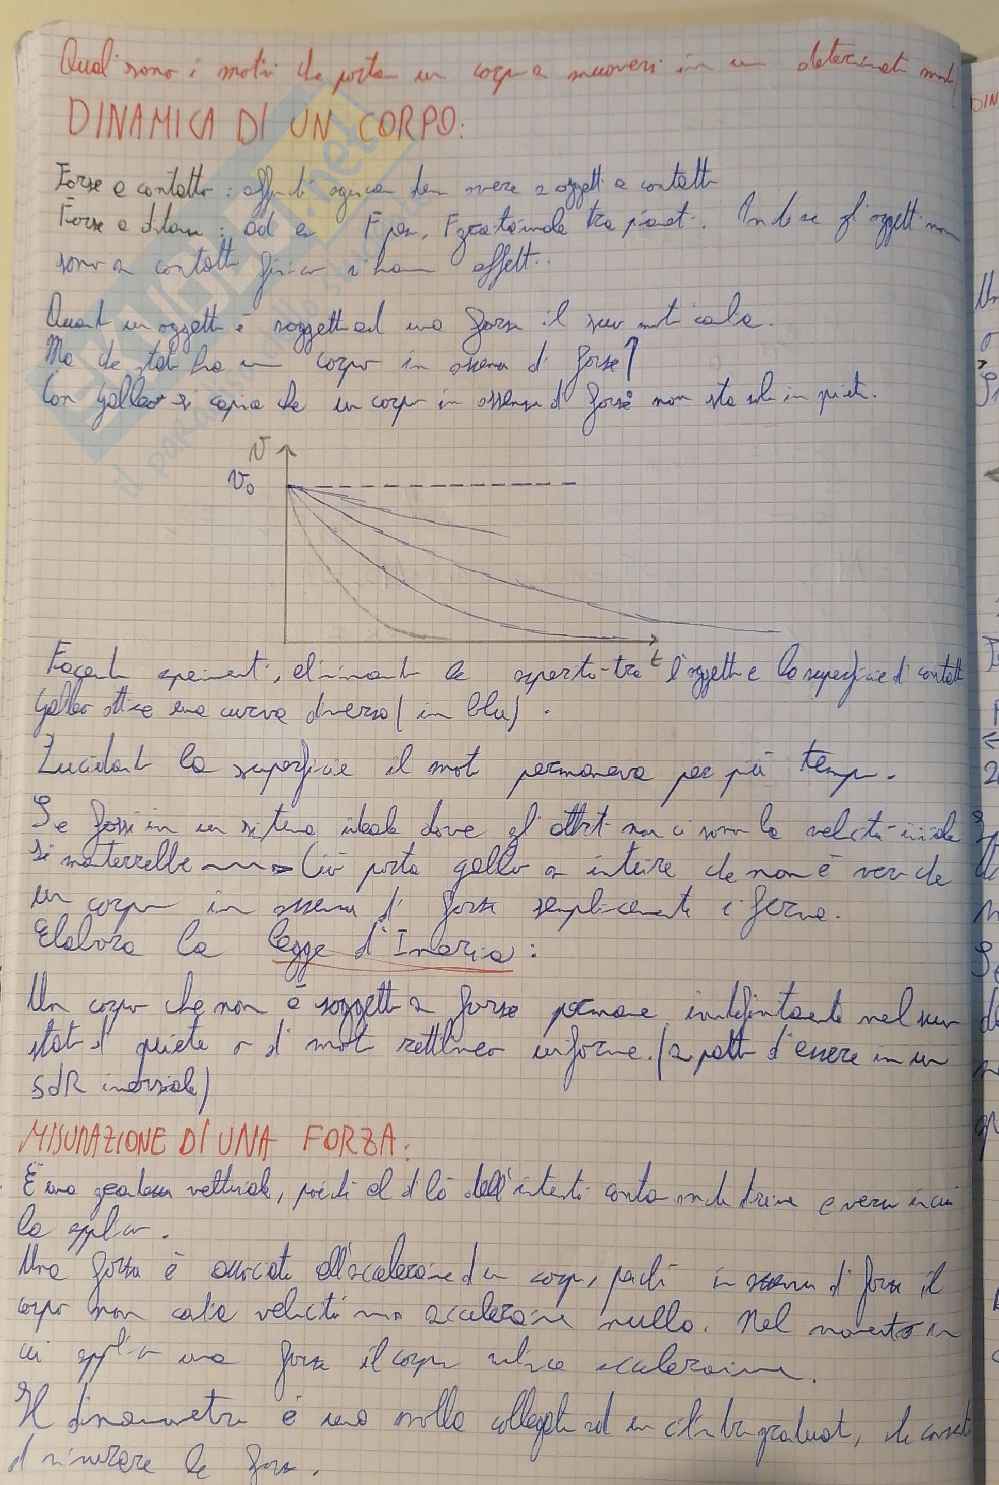 Quali sono i motivi che porta un corpo a muoversi in un determinato modo,
DINAMICA DI UN CORPO:
Forze a contatto: affinché agiscan devon avere 2 oggetti a contatto
Forze a distanza: ad es Fpeso, Fgravitazionale tra pianeti. Anche se gli oggetti non
sono a contatto fisico si hanno effetti.
Quando un oggetto è soggetto ad una forza il suo moto cambia.
Ma che stato ha un corpo in assenza di forze?
Con Galileo si capisce che un corpo in assenza di forze non sta solo in quiete.
v
v₀
t
Facendo esperimenti, eliminando le asperità tra l'oggetto e la superficie di contatto
Galileo ottiene una curva diversa (in blu).
Lucidando la superficie il moto permaneva per più tempo.
Se fossi in un sistema ideale dove gli attriti non ci sono la velocità iniziale
si manterrebbe → Ciò porta Galileo a intuire che non è vero che
un corpo in assenza di forze semplicemente è fermo.
Elabora la legge d'Inerzia:
Un corpo che non è soggetto a forze permane indefinitamente nel suo
stato di quiete o di moto rettilineo uniforme. (a patto d'essere in un
SdR inerziale)
MISURAZIONE DI UNA FORZA:
È una grandezza vettoriale, poiché al di là dell'intensità conta anche direzione e verso in cui
la applico.
Una forza è associata all'accelerazione di un corpo, poiché in assenza di forze il
corpo non cambia velocità, ha accelerazione nulla. Nel momento in
cui applico una forza il corpo subisce accelerazione.
Il dinamometro è una molla collegata ad un cilindro graduato, che consente
di misurare le forze.